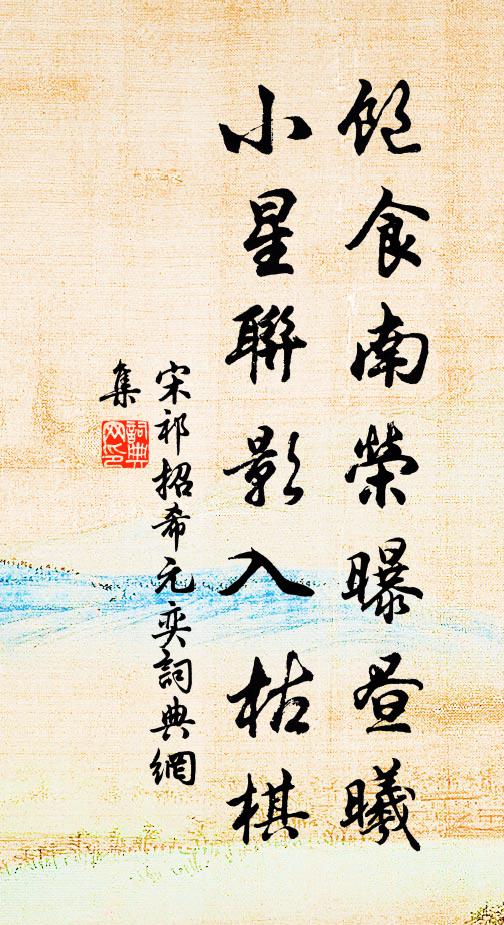 飽食南榮曝昼曦
小星聯影入枯棋
宋祁招希元奕詞典網
集
詞典
网印